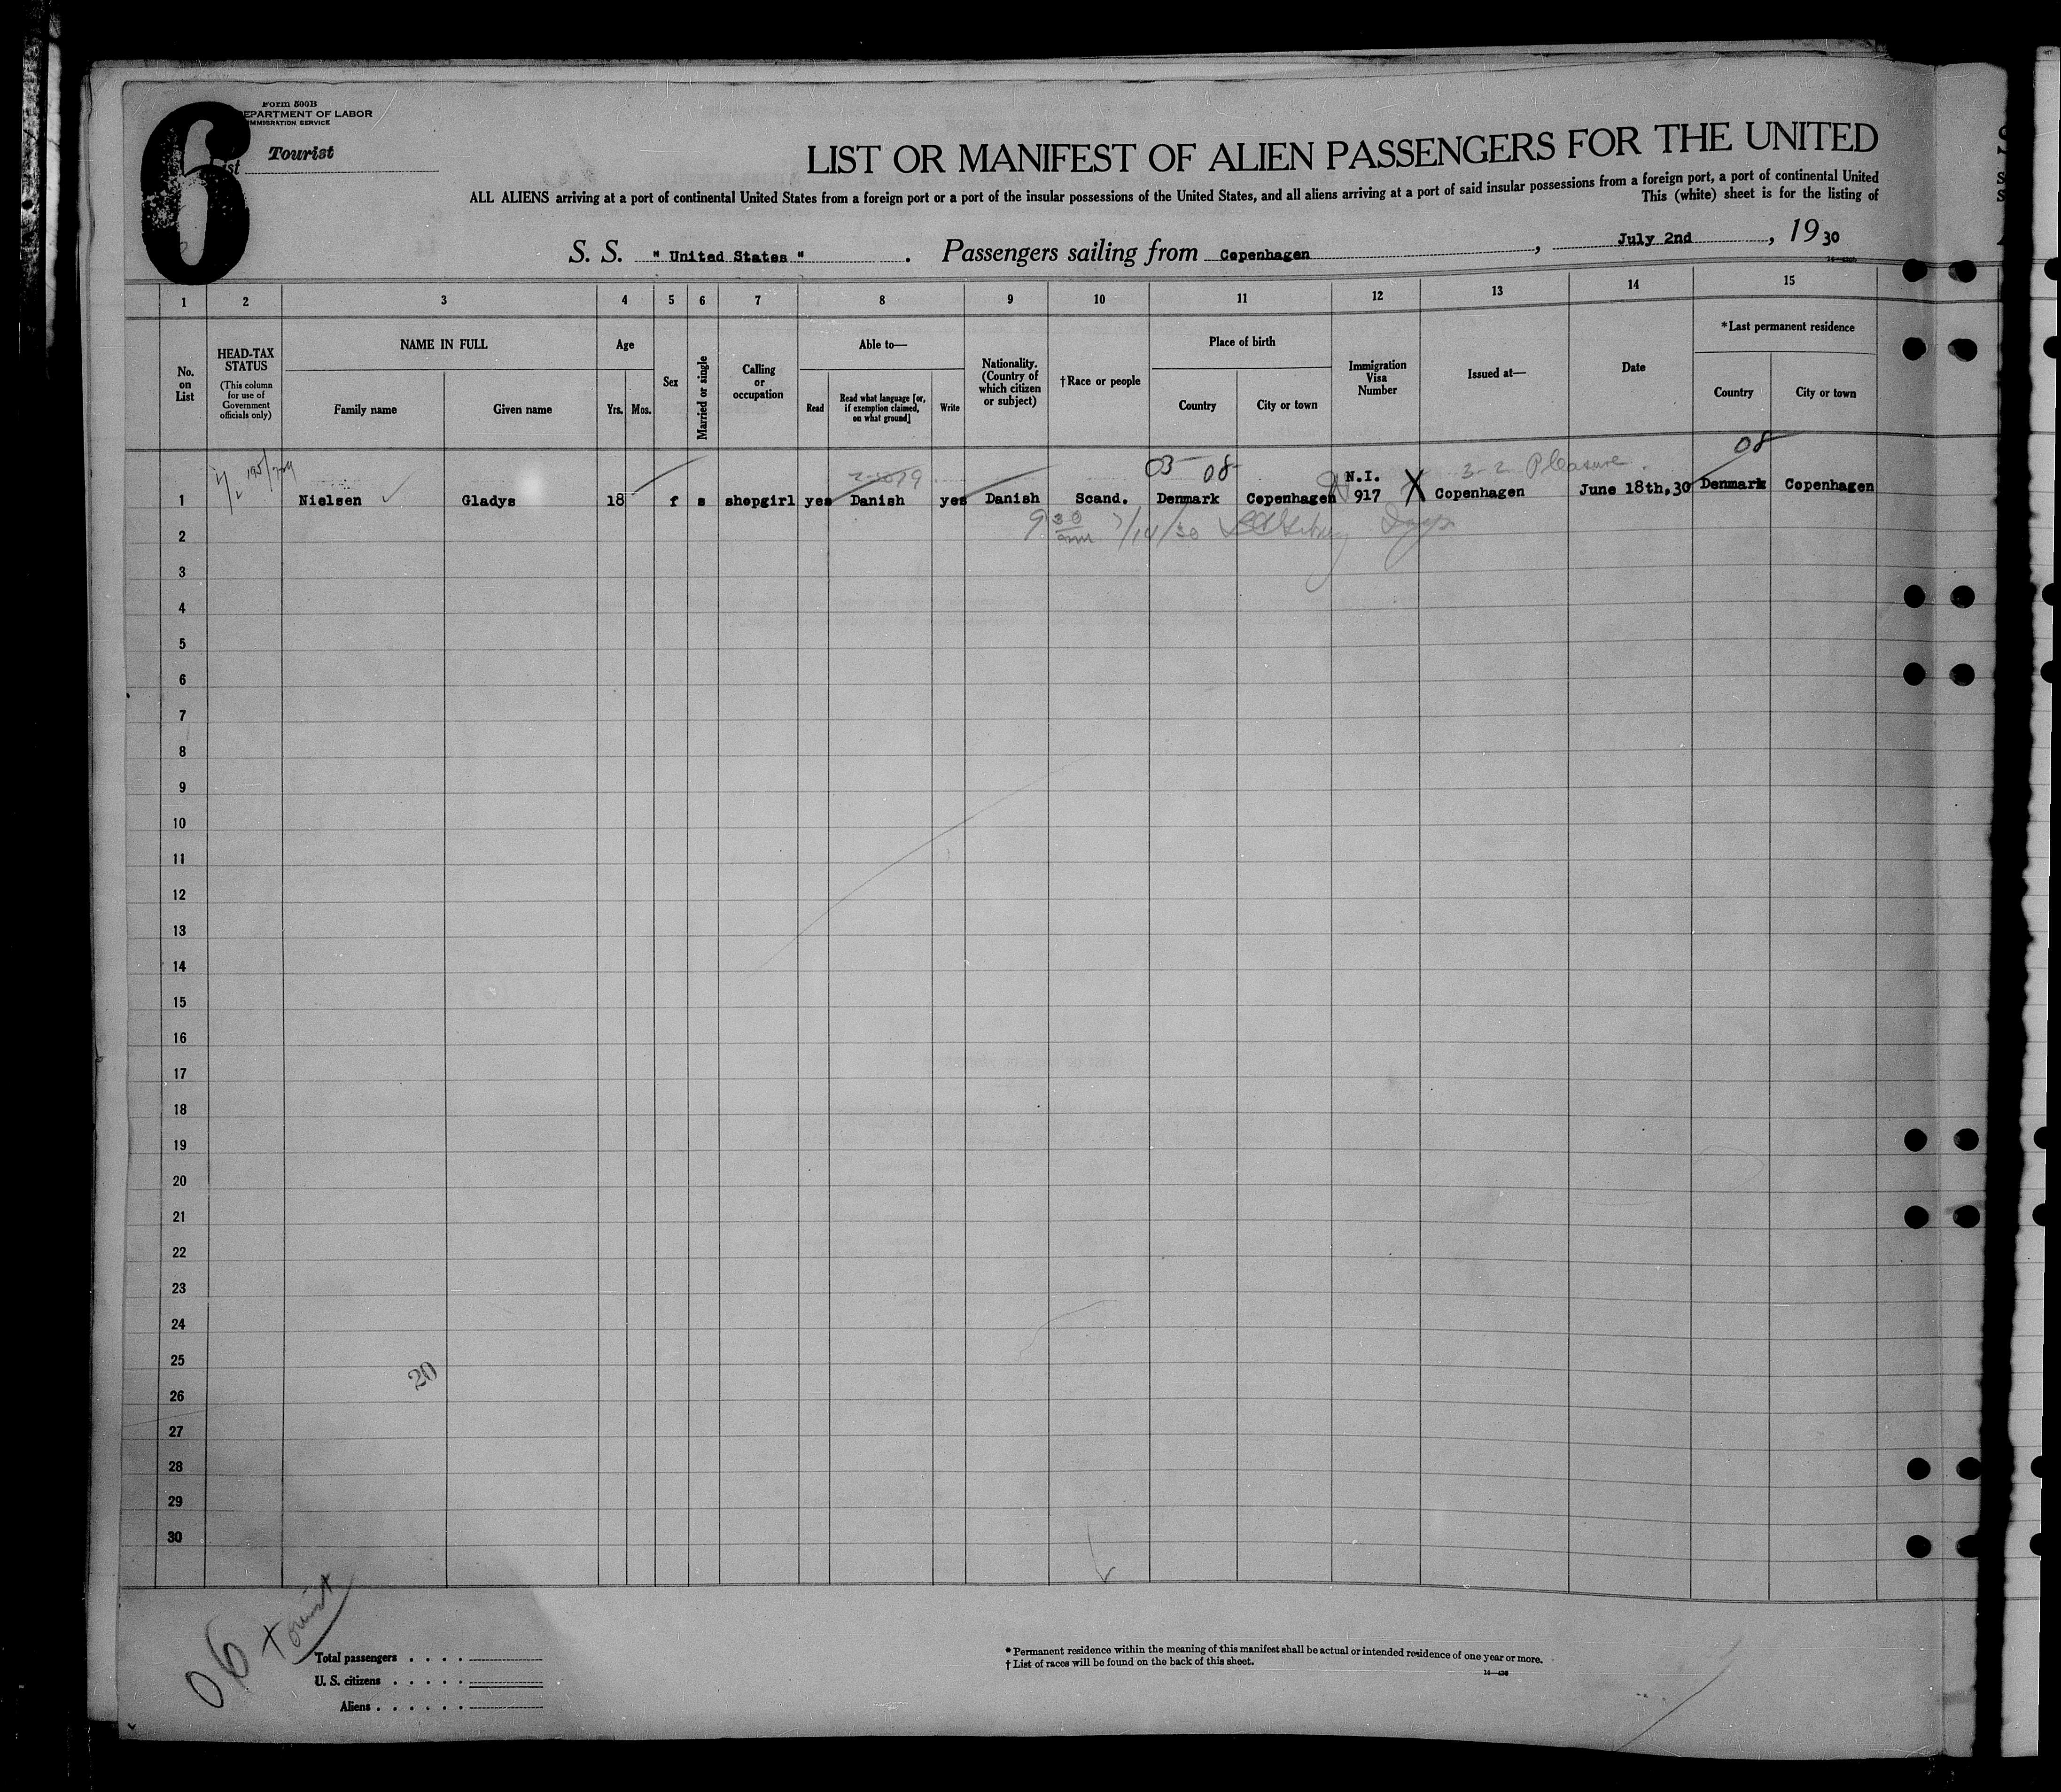 6
Form 500B
DEPARTMENT OF LABOR
IMMIGRATION SERVICE
List Tourist
LIST OR MANIFEST OF ALIEN PASSENGERS FOR THE UNITED
ALL ALIENS arriving at a port of continental United States from a foreign port or a port of the insular possessions of the United States, and all aliens arriving at a port of said insular possessions from a foreign port, a port of continental United
This (white) sheet is for the listing of
S. S. " United States ". Passengers sailing from Copenhagen, July 2nd, 1930
1 2 3 4 5 6 7 8 9 10 11 12 13 14 15
No. on List
HEAD-TAX STATUS
(This column for use of Government officials only)
NAME IN FULL
Family name
Given name
Age
Yrs. Mos.
Sex
Married or single
Calling or occupation
Able to—
Read
Read what language [or, if exemption claimed, on what ground]
Write
Nationality. (Country of which citizen or subject)
†Race or people
Place of birth
Country
City or town
Immigration Visa Number
Issued at—
Date
*Last permanent residence
Country
City or town
03 08 3-2 Pleasure 08
N.I.
1 Nielsen Gladys 18 f s shopgirl yes Danish yes Danish Scand. Denmark Copenhagen 917 X Copenhagen June 18th,30 Denmark Copenhagen
2 9 30 am 7/14/30
3
4
5
6
7
8
9
10
11
12
13
14
15
16
17
18
19
20
21
22
23
24
25
20
26
27
28
29
30
06 Tourist
Total passengers
U. S. citizens
Aliens
* Permanent residence within the meaning of this manifest shall be actual or intended residence of one year or more.
† List of races will be found on the back of this sheet.